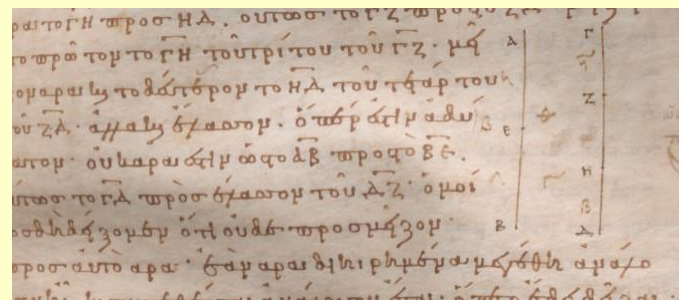 τὸ ΓΗ πρὸς ΗΔ. οὕτως τὸ ΓΖ πρὸς
τὸ πρῶτον τὸ ΓΗ τοῦ τρίτου τοῦ ΓΖ· μεῖ
ον ἄρα καὶ τὸ δεύτερον τὸ ΗΔ τοῦ τετάρτου
οῦ ΖΔ· ἀλλὰ καὶ ἔλασσον· ὅπερ ἐστὶν ἀδύ
ατον· οὐκ ἄρα ἐστὶν ὡς τὸ ΑΒ πρὸς τὸ ΒΕ.
ὕτως τὸ ΓΔ πρὸς ἔλασσον τοῦ ΔΖ· ὁμοί
ως δὴ δείξομεν ὅτι οὐδὲ πρὸς μεῖζον·
πρὸς αὐτὸ ἄρα· ἐὰν ἄρα διηρημένα μεγέθη ἀνάλο
Α
Ε
Β
Γ
Ζ
Η
Δ